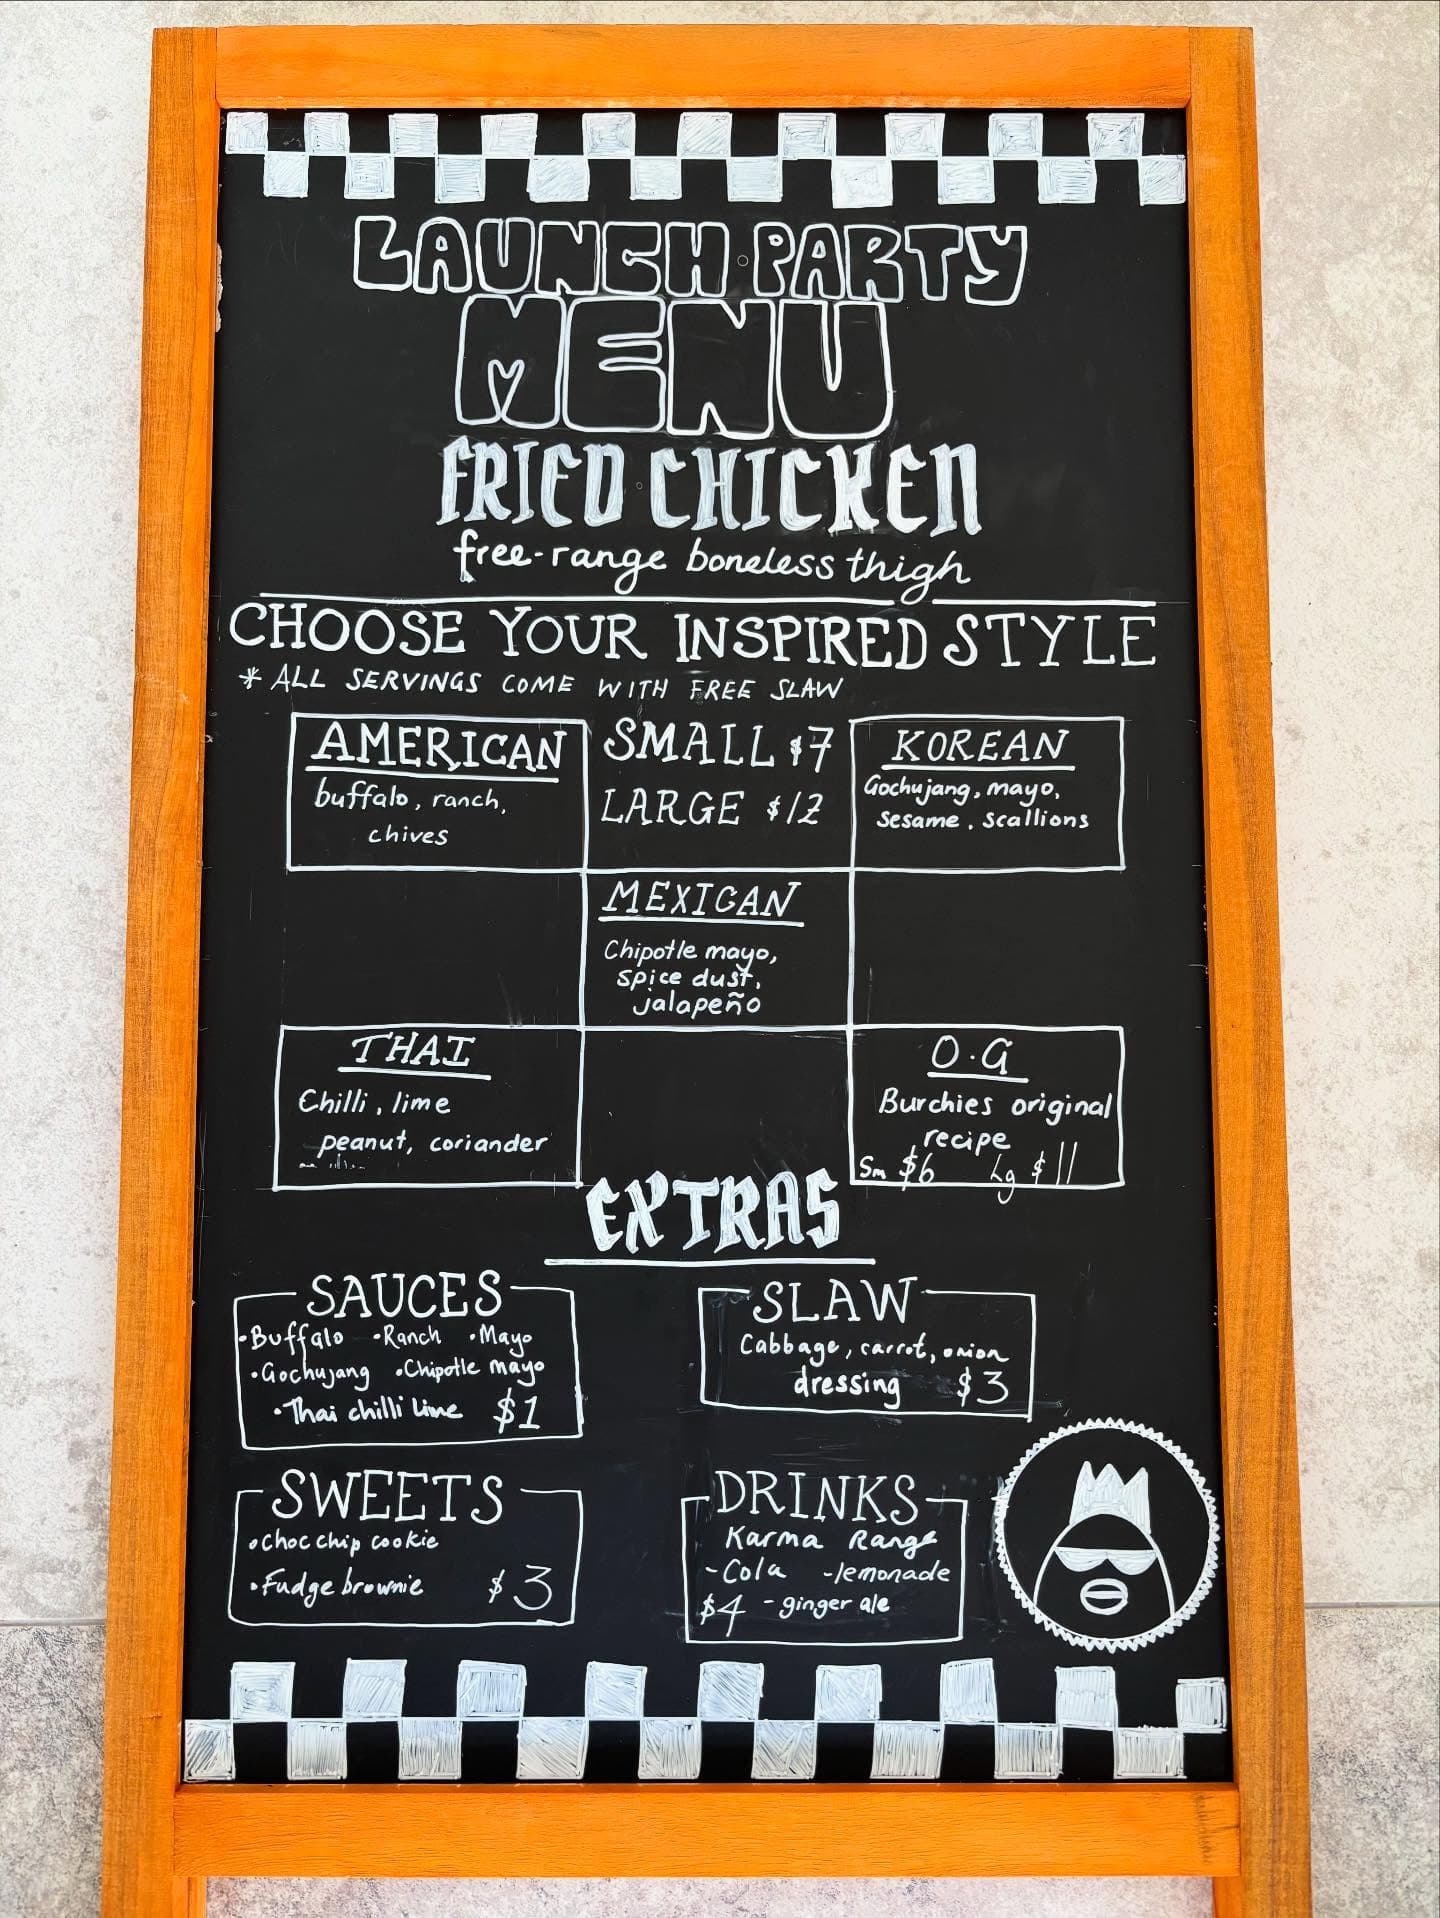 LAUNCH PARTY
MENU
FRIED CHICKEN
free-range boneless thigh
CHOOSE YOUR INSPIRED STYLE
* ALL SERVINGS COME WITH FREE SLAW
AMERICAN
buffalo, ranch,
chives
SMALL $7
LARGE $12
KOREAN
Gochujang, mayo,
sesame, scallions
MEXICAN
Chipotle mayo,
spice dust,
jalapeño
THAI
Chilli, lime
peanut, coriander
O.G
Burchies original
recipe
Sm $6 Lg $11
EXTRAS
SAUCES
•Buffalo •Ranch •Mayo
•Gochujang •Chipotle mayo
•Thai chilli lime $1
SLAW
Cabbage, carrot, onion
dressing $3
SWEETS
•Choc chip cookie
•Fudge brownie $3
DRINKS
Karma Range
-Cola -lemonade
$4 -ginger ale